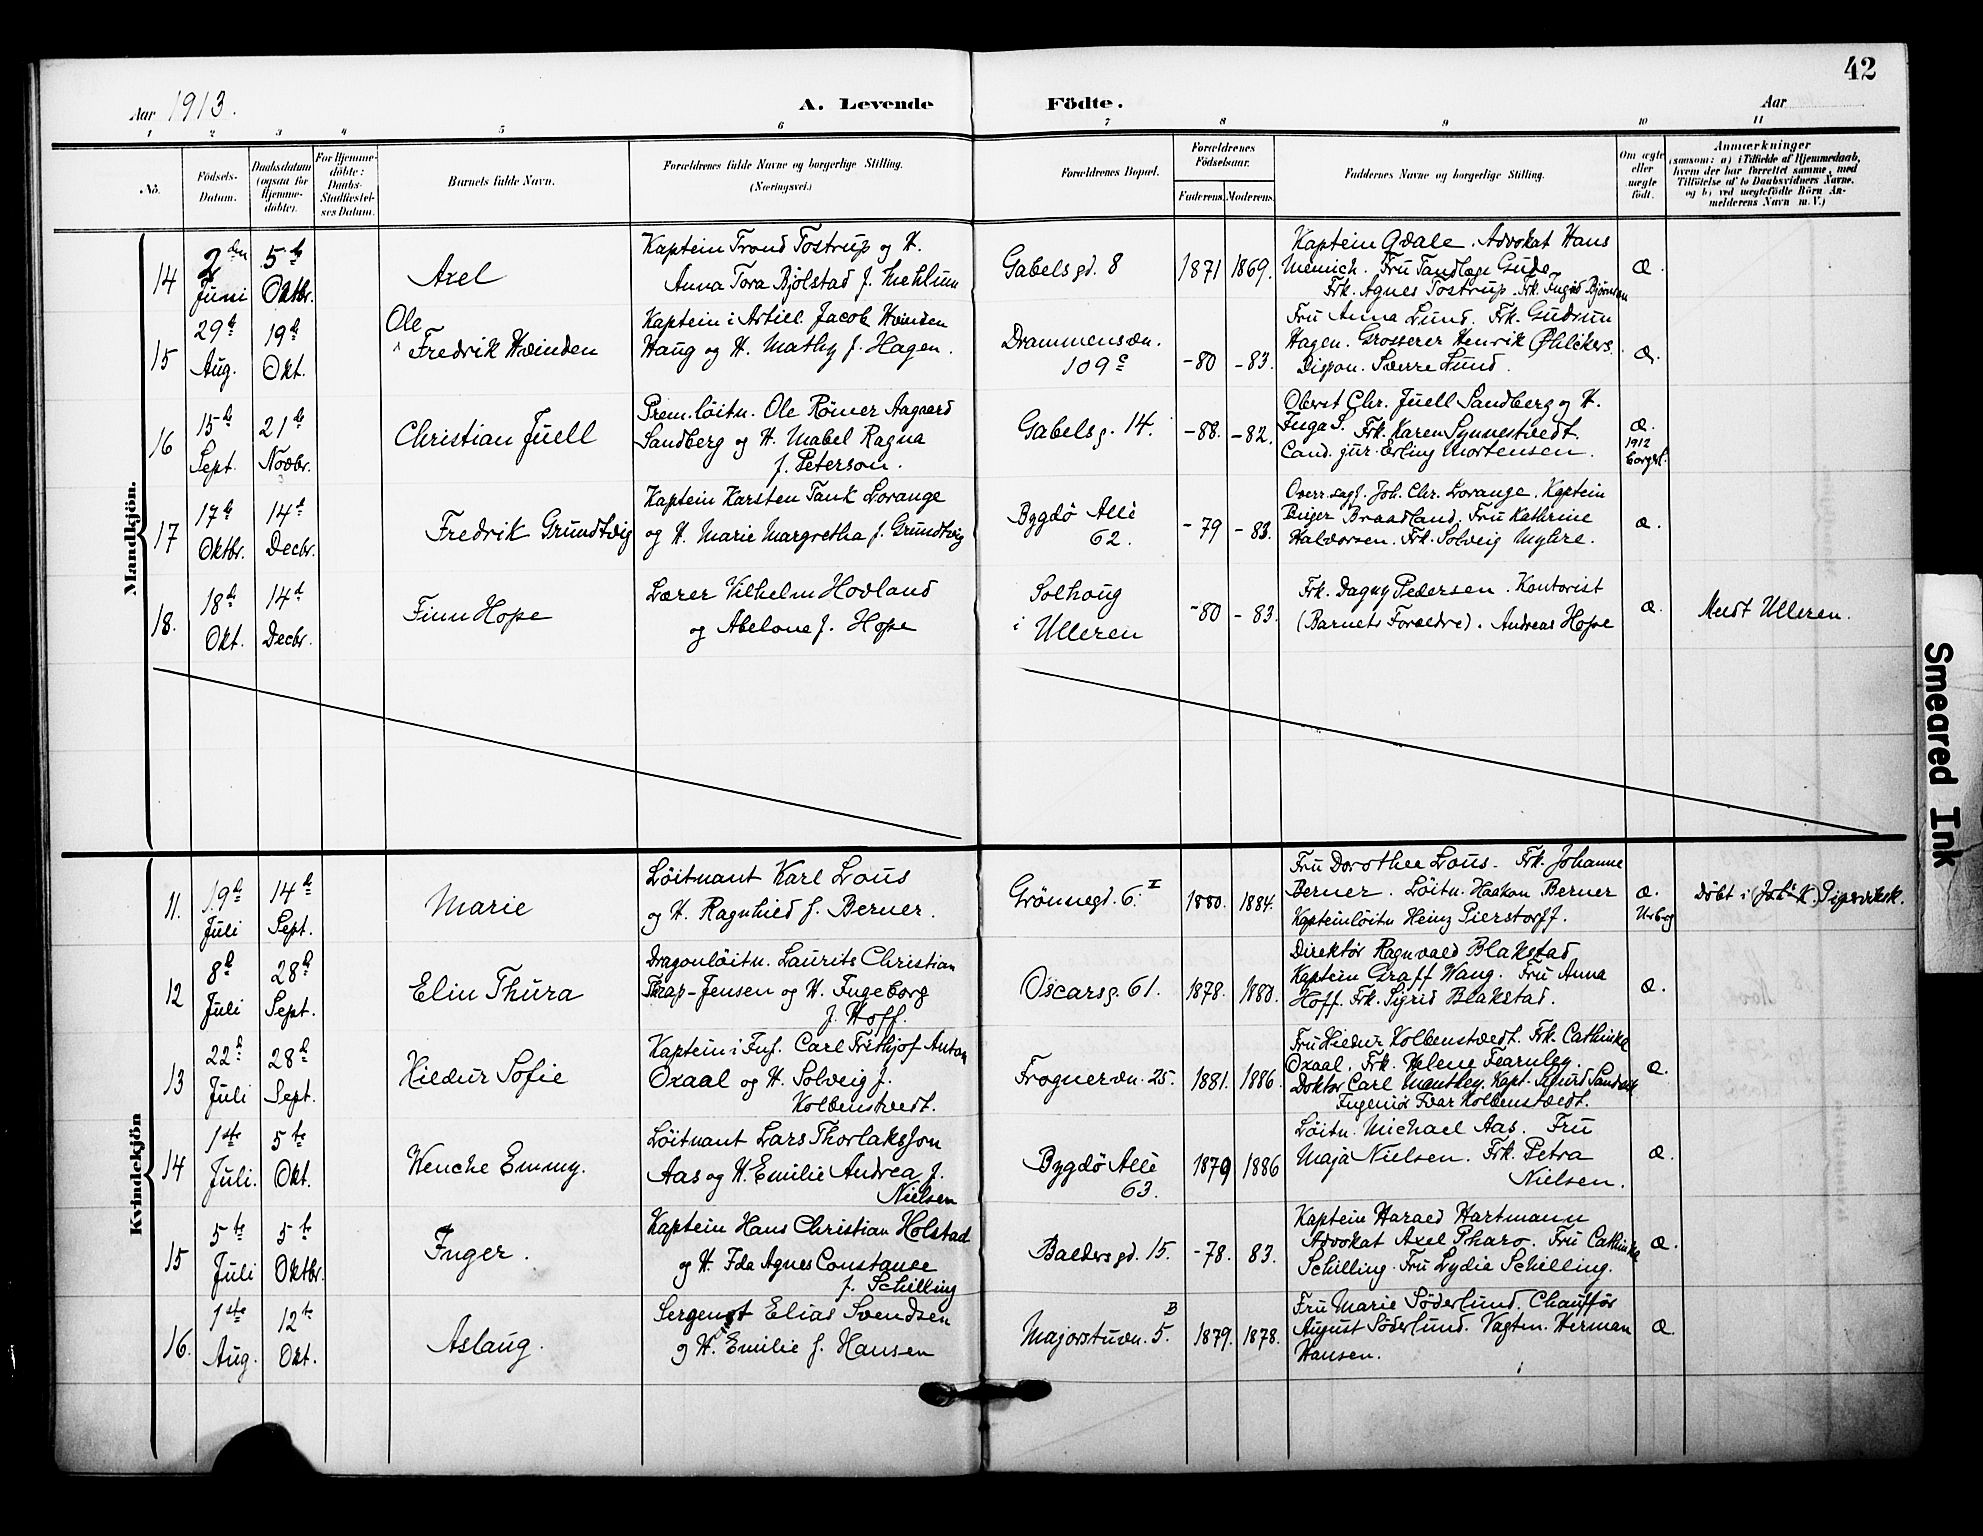 42
Aar 1913. A. Levende Födte. Aar
1 2 3 4 5 6 7 8 9 10 11
No.
Födsels-Datum.
Daabsdatum (ogsaa for Hjemme-döbte).
For Hjemme-döbte: Daabs-Stadfæstel-ses Datum.
Barnets fulde Navn.
Forældrenes fulde Navne og borgerlige Stilling. (Næringsvei.)
Forældrenes Bopæl.
Forældrenes Födselsaar.
Faderens. Moderens.
Faddernes Navne og borgerlige Stilling.
Om ægte eller uægte födt.
Anmærkninger
(saasom: a) i Tilfælde af Hjemmedaab, hvem der har forrettet samme, med Tilföielse af to Daabsvidners Navne, og b) ved uægtefödte Börn An-melderens Navn m. V.)
Mandkjön.
14 2den Juni 5te Oktbr. Axel
Kaptein Trond Tostrup og H.
Anna Tora Bjölstad f. Mehlum
Gabelsgd. 8 1871 1869.
Kaptein Qvale. Advokat Hans
Memich. Fru Tandlæge Gude
Frk. Agnes Tostrup. Frk. Bjørnson
Æ.
15 29de Aug. 19de Okt. Ole Fredrik Hvinden
Kaptein i Artill. Jacob Hvinden
Haug og H. Mathy f. Hagen.
Drammensvn. 109c -80 -83.
Fru Anna Lund. Frk. Gudrun
Hagen. Grosserer Henrik Øhlckers.
Dispon. Sverre Lund.
Æ.
16 15de Sept. 21de Novbr. Christian Juell
Prem.löitn. Ole Römer Aagaard
Sandberg og H. Mabel Ragna
f. Peterson.
Gabelsg. 14. -88. -82.
Oberst Chr. Juell Sandberg og H.
Inga S. Frk. Karen Synnestvedt.
Cand. jur. Erling Mortensen.
Æ. 1912 borgerl.
17 17de Oktbr. 14de Decbr. Fredrik Grundtvig
Kaptein Karsten Tank Lorange
og H. Marie Margretha f. Grundtvig
Bygdö Alle 62. -79 -83.
Overr.sagf. Joh. Chr. Lorange. Kaptein
Birger Braadland. Fru Kathrine
Halvorsen. Frk. Solveig Myhre.
Æ.
18. 18de Okt. 14de Decbr. Finn Hope
Lærer Vilhelm Hovland
og Abelone f. Hope
Solhaug i Ulleren -80 -83.
Frk. Dagny Pedersen. Kontorist
(Barnets Forældre). Andreas Hope
Æ. Meldt Ulleren.
Kvindekjön
11. 19de Juli 14de Sept. Marie
Löitnant Karl Lous
og H. Ragnhild f. Berner.
Grönnegd. 6. I 1880. 1884.
Fru Dorothea Lous. Frk. Johanne
Berner. Löitn. Haakon Berner
Kapteinlöitn Heinz Pierstorff.
Æ. Döbt i (Joh's K.) Piperviksk.
12 8de Juli 28de Sept. Elin Thura
Dragonlöitn. Laurits Christian
Thrap-Jensen og H. Ingeborg
f. Hoff.
Oscarsg. 61. 1878. 1880.
Direktör Ragnvald Blakstad
Kaptein Graff Wang. Fru Anna
Hoff. Frk. Sigrid Blakstad.
Æ.
13 22de Juli 28de Sept. Hildur Sofie
Kaptein i Inf. Carl Frithjof Anton
Oxaal og H. Solveig f.
Kolbenstvedt.
Frognervn. 25. 1881. 1886.
Fru Hildur Kolbenstvedt. Frk. Cathinka
Oxaal. Frk. Helene Fearnley.
Doktor Carl Manthey. Kapt. Sigurd
Ingeniör Ivar Kolbenstvedt.
Æ.
14 1ste Juli. 5te Okt. Wenche Emmy.
Löitnant Lars Thorlaksson
Aas og H. Emilie Andrea f.
Nielsen
Bygdö Alle 63. 1879 1886
Löitn. Michael Aas. Fru
Maja Nielsen. Frk. Petra
Nielsen.
Æ.
15 5te Juli 5te Oktbr. Inger.
Kaptein Hans Christian Holstad
og H. Ida Agnes Constanse
f. Schilling
Baldersgd. 15. -78. 83.
Kaptein Harald Hartmann
Advokat Axel Pharo. Fru Cathinka
Schilling. Fru Lydia Schilling.
Æ.
16. 1ste Aug. 12te Okt. Aslaug.
Sergent Elias Svendsen
og H. Emilie f. Hansen
Majorstuvn. 5. B 1879. 1878.
Fru Marie Söderlund. Chauffør
August Söderlund. Vagtm. Herman
Hansen.
Æ.
Smeared Ink